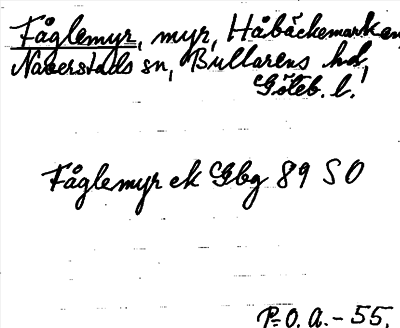 Fåglemyr, myr, Håbäckemarken,
Naverstads sn, Bullarens hd,
Göteb. l.
Fåglemyr ek Gbg 89 SO
P.O.A. - 55.